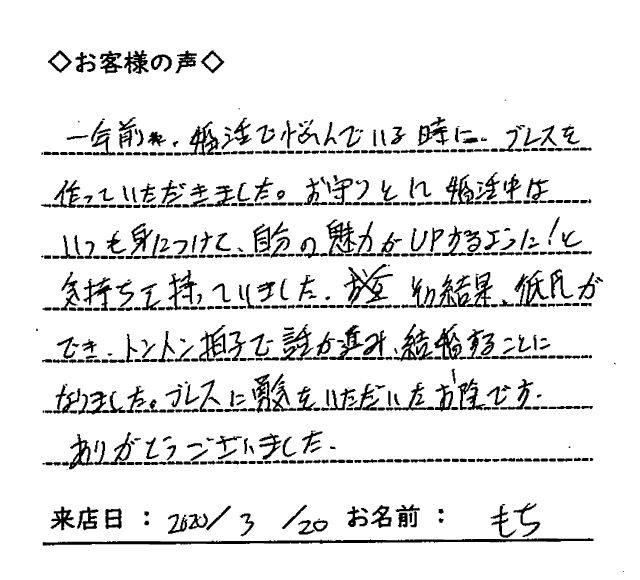 ◇お客様の声◇
一年前、婚活で悩んでいる時に、ブレスを
作っていただきました。お守りとして婚活中は
いつも身につけて、自分の魅力がUPするように!と
気持ちを持っていました。その結果、彼氏が
でき、トントン拍子で話が進み、結婚することに
なりました。ブレスに勇気をいただいたお陰です。
ありがとうございました。
来店日：2020/3/20 お名前：もち